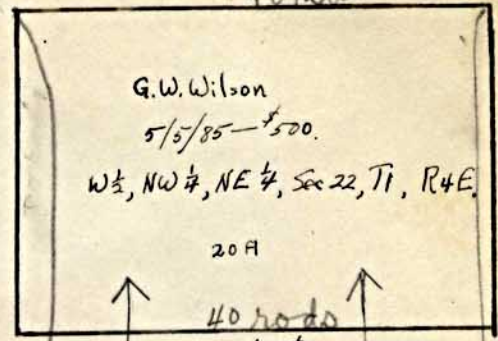 G.W. Wilson
5/5/85 — $500.
W½, NW¼, NE¼, Sec 22, T1, R4E.
20 A
40 rods